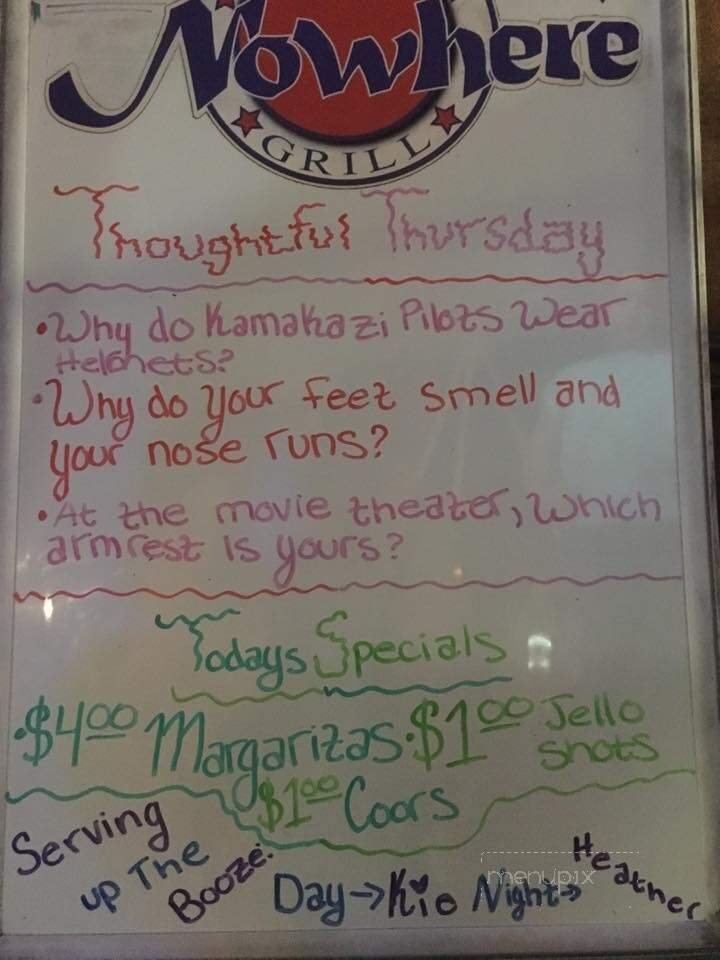 Nowhere
GRILL
Thoughtful Thursday
•Why do Kamakazi Pilots Wear
Helmets?
•Why do your feet smell and
your nose runs?
•At the movie theater, which
armrest is yours?
Todays Specials
•$4.00 Margaritas •$1.00 Jello
shots
$1.00 Coors
Serving
up The
Booze:
Day→Kie Night→Heather
menupix